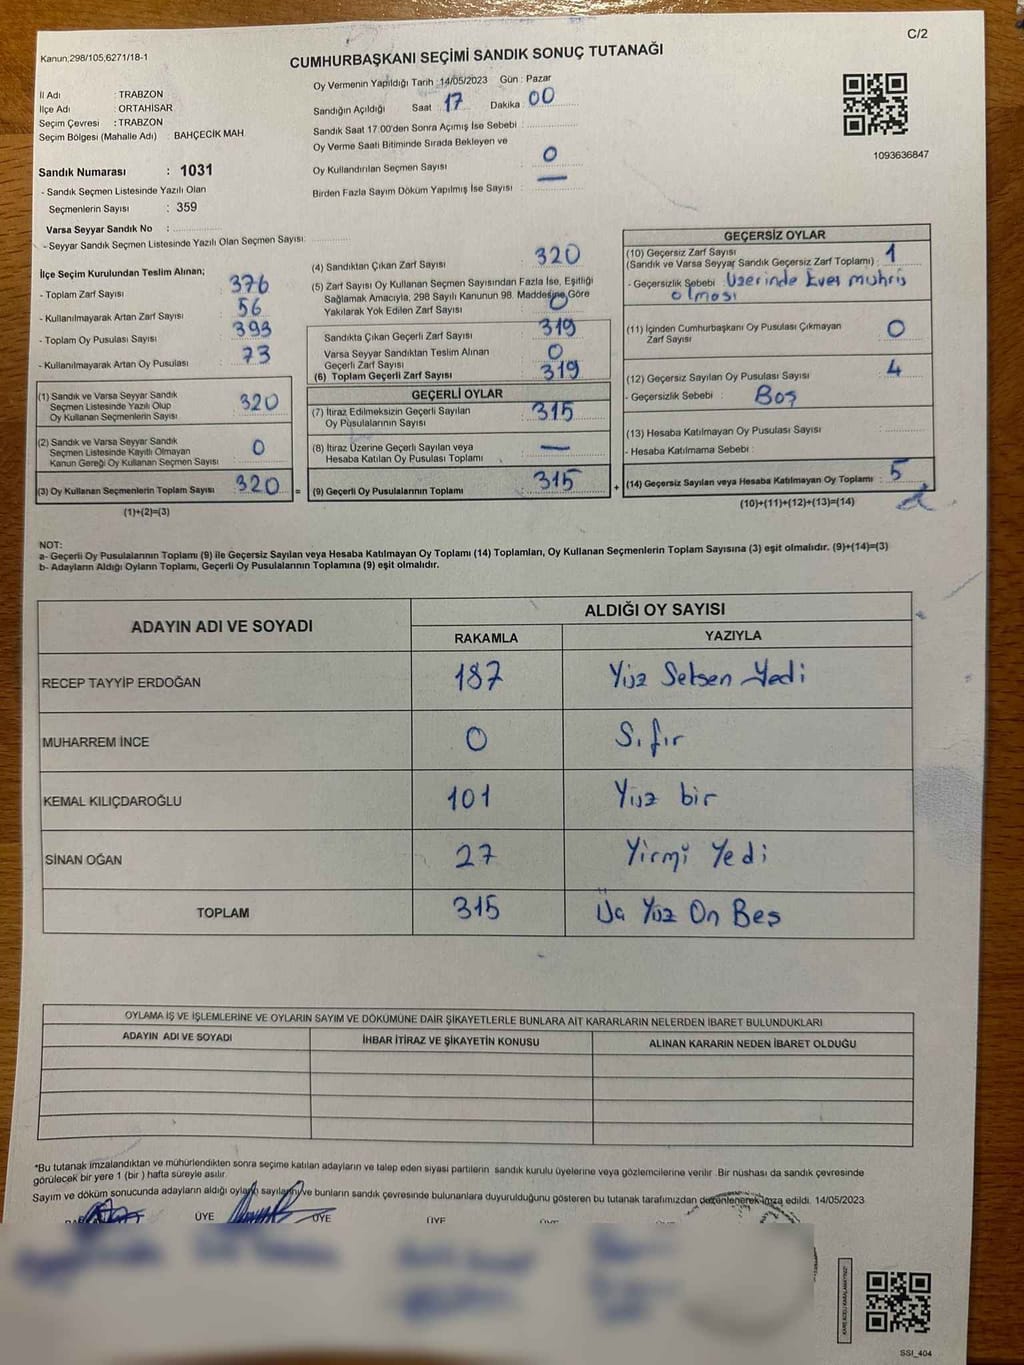 C/2
Kanun;298/105;6271/18-1
CUMHURBAŞKANI SEÇİMİ SANDIK SONUÇ TUTANAĞI
İl Adı : TRABZON
İlçe Adı : ORTAHİSAR
Seçim Çevresi : TRABZON
Seçim Bölgesi (Mahalle Adı) : BAHÇECİK MAH
Sandık Numarası : 1031
- Sandık Seçmen Listesinde Yazılı Olan
Seçmenlerin Sayısı : 359
Varsa Seyyar Sandık No :
- Seyyar Sandık Seçmen Listesinde Yazılı Olan Seçmen Sayısı:
Oy Vermenin Yapıldığı Tarih : 14/05/2023 Gün : Pazar
Sandığın Açıldığı Saat 17 Dakika 00
Sandık Saat 17.00'den Sonra Açımış İse Sebebi :
Oy Verme Saati Bitiminde Sırada Bekleyen ve
Oy Kullandırılan Seçmen Sayısı 0
Birden Fazla Sayım Döküm Yapılmış İse Sayısı : —
1093636847
İlçe Seçim Kurulundan Teslim Alınan;
- Toplam Zarf Sayısı 376
- Kullanılmayarak Artan Zarf Sayısı 56
- Toplam Oy Pusulası Sayısı 393
- Kullanılmayarak Artan Oy Pusulası 73
(1) Sandık ve Varsa Seyyar Sandık
Seçmen Listesinde Yazılı Olup
Oy Kullanan Seçmenlerin Sayısı 320
(2) Sandık ve Varsa Seyyar Sandık
Seçmen Listesinde Kayıtlı Olmayan
Kanun Gereği Oy Kullanan Seçmen Sayısı 0
(3) Oy Kullanan Seçmenlerin Toplam Sayısı 320 =
(1)+(2)=(3)
(4) Sandıktan Çıkan Zarf Sayısı 320
(5) Zarf Sayısı Oy Kullanan Seçmen Sayısından Fazla İse, Eşitliği
Sağlamak Amacıyla, 298 Sayılı Kanunun 98. Maddesine Göre
Yakılarak Yok Edilen Zarf Sayısı : 0
Sandıkta Çıkan Geçerli Zarf Sayısı 319
Varsa Seyyar Sandıktan Teslim Alınan
Geçerli Zarf Sayısı 0
(6) Toplam Geçerli Zarf Sayısı 319
GEÇERLİ OYLAR
(7) İtiraz Edilmeksizin Geçerli Sayılan
Oy Pusulalarının Sayısı 315
(8) İtiraz Üzerine Geçerli Sayılan veya
Hesaba Katılan Oy Pusulası Toplamı —
(9) Geçerli Oy Pusulalarının Toplamı 315 +
GEÇERSİZ OYLAR
(10) Geçersiz Zarf Sayısı
(Sandık ve Varsa Seyyar Sandık Geçersiz Zarf Toplamı) : 1
- Geçersizlik Sebebi : Üzerinde Evet mührü
olması
(11) İçinden Cumhurbaşkanı Oy Pusulası Çıkmayan
Zarf Sayısı 0
(12) Geçersiz Sayılan Oy Pusulası Sayısı 4
- Geçersizlik Sebebi : Boş
(13) Hesaba Katılmayan Oy Pusulası Sayısı
- Hesaba Katılmama Sebebi :
(14) Geçersiz Sayılan veya Hesaba Katılmayan Oy Toplamı : 5
(10)+(11)+(12)+(13)=(14)
NOT:
a- Geçerli Oy Pusulalarının Toplamı (9) ile Geçersiz Sayılan veya Hesaba Katılmayan Oy Toplamı (14) Toplamları, Oy Kullanan Seçmenlerin Toplam Sayısına (3) eşit olmalıdır. (9)+(14)=(3)
b- Adayların Aldığı Oyların Toplamı, Geçerli Oy Pusulalarının Toplamına (9) eşit olmalıdır.
ADAYIN ADI VE SOYADI
ALDIĞI OY SAYISI
RAKAMLA YAZIYLA
RECEP TAYYİP ERDOĞAN 187 Yüz Seksen Yedi
MUHARREM İNCE 0 Sıfır
KEMAL KILIÇDAROĞLU 101 Yüz bir
SİNAN OĞAN 27 Yirmi Yedi
TOPLAM 315 Üç Yüz On Beş
OYLAMA İŞ VE İŞLEMLERİNE VE OYLARIN SAYIM VE DÖKÜMÜNE DAİR ŞİKAYETLERLE BUNLARA AİT KARARLARIN NELERDEN İBARET BULUNDUKLARI
ADAYIN ADI VE SOYADI İHBAR İTİRAZ VE ŞİKAYETİN KONUSU ALINAN KARARIN NEDEN İBARET OLDUĞU
*Bu tutanak imzalandıktan ve mühürlendikten sonra seçime katılan adayların ve talep eden siyasi partilerin sandık kurulu üyelerine veya gözlemcilerine verilir. Bir nüshası da sandık çevresinde
görülecek bir yere 1 (bir ) hafta süreyle asılır.
Sayım ve döküm sonucunda adayların aldığı oyların sayıları ve bunların sandık çevresinde bulunanlara duyurulduğunu gösteren bu tutanak tarafımızdan düzenlenerek imza edildi. 14/05/2023
ÜYE ÜYE ÜYE
SSİ_404